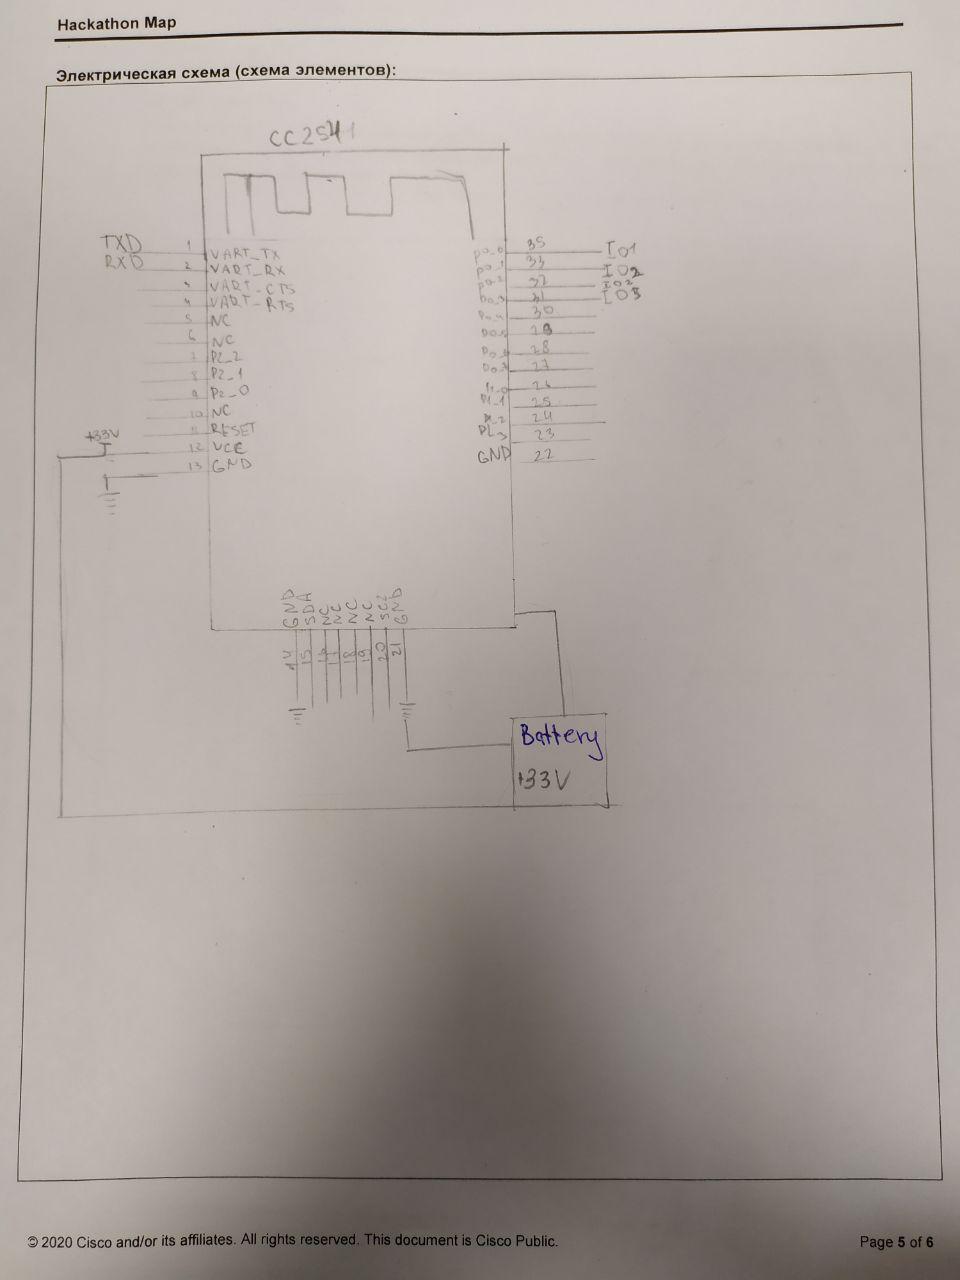 Hackathon Map
Электрическая схема (схема элементов):
CC2541
TXD 1 VART_TX
RXD 2 VART_RX
3 VART-CTS
4 VART-RTS
5 NC
6 NC
7 P2_2
8 P2_1
9 P2_0
10 NC
11 RESET
+33V
12 VCE
13 GND
P0_0 35 IO1
P0_1 33 IO2
P0_2 32 IO2
P0_3 31 IO3
P0_4 30
P0_5 29
28
27
26
P1_1 25
P1_2 24
P1_3 23
GND 22
GND 14
SDA 15
NC 16
NC 17
NC 18
NC 19
20
GND 21
Battery
+33V
© 2020 Cisco and/or its affiliates. All rights reserved. This document is Cisco Public.
Page 5 of 6